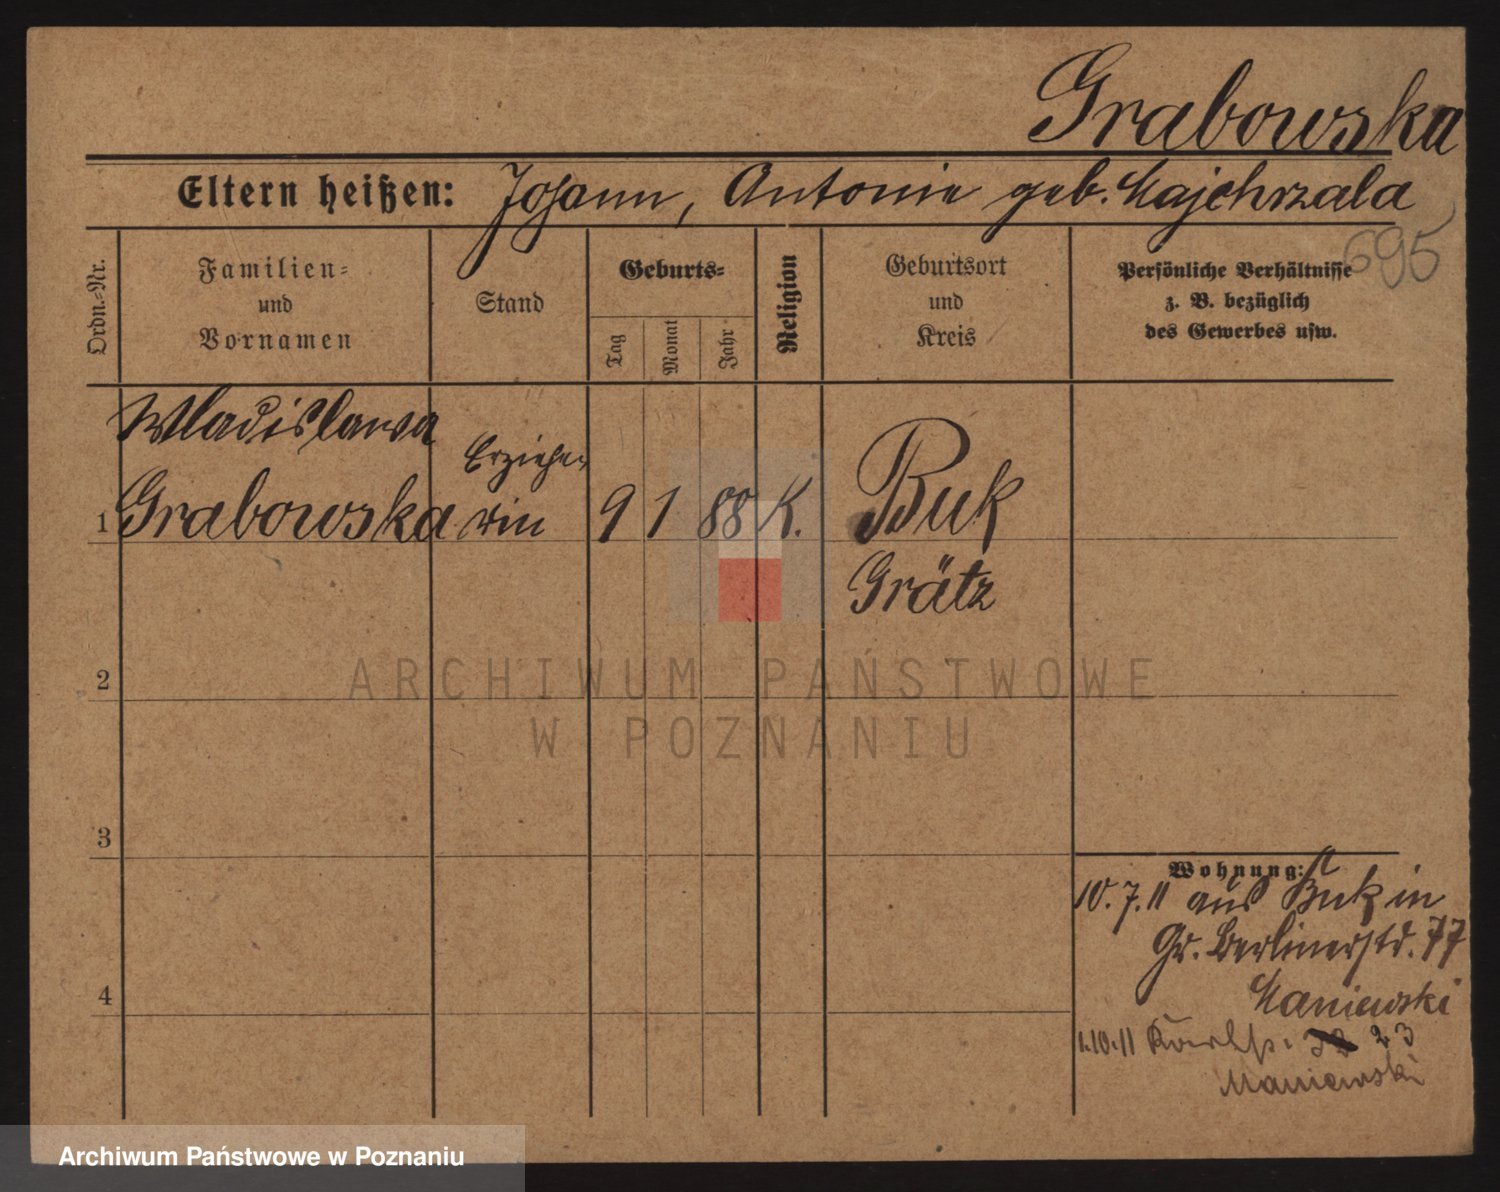 Grabowska
Eltern heißen: Johann, Antonie geb. Majchrzala
695
Ordn.-Nr.
Familien-
und
Vornamen
Stand
Geburts-
Tag
Monat
Jahr
Religion
Geburtsort
und
Kreis
Persönliche Verhältnisse
z. B. bezüglich
des Gewerbes usw.
Wladislawa
Erziehe-
1 Grabowska rin 9 1 88 K. Buk
Grätz
2
ARCHIWUM PAŃSTWOWE
W POZNANIU
3
Wohnung:
10.7.11 aus Buk in
Gr. Berlinerstr. 77
Maniewski
4
1.10.11 23
Maniewski
Archiwum Państwowe w Poznaniu